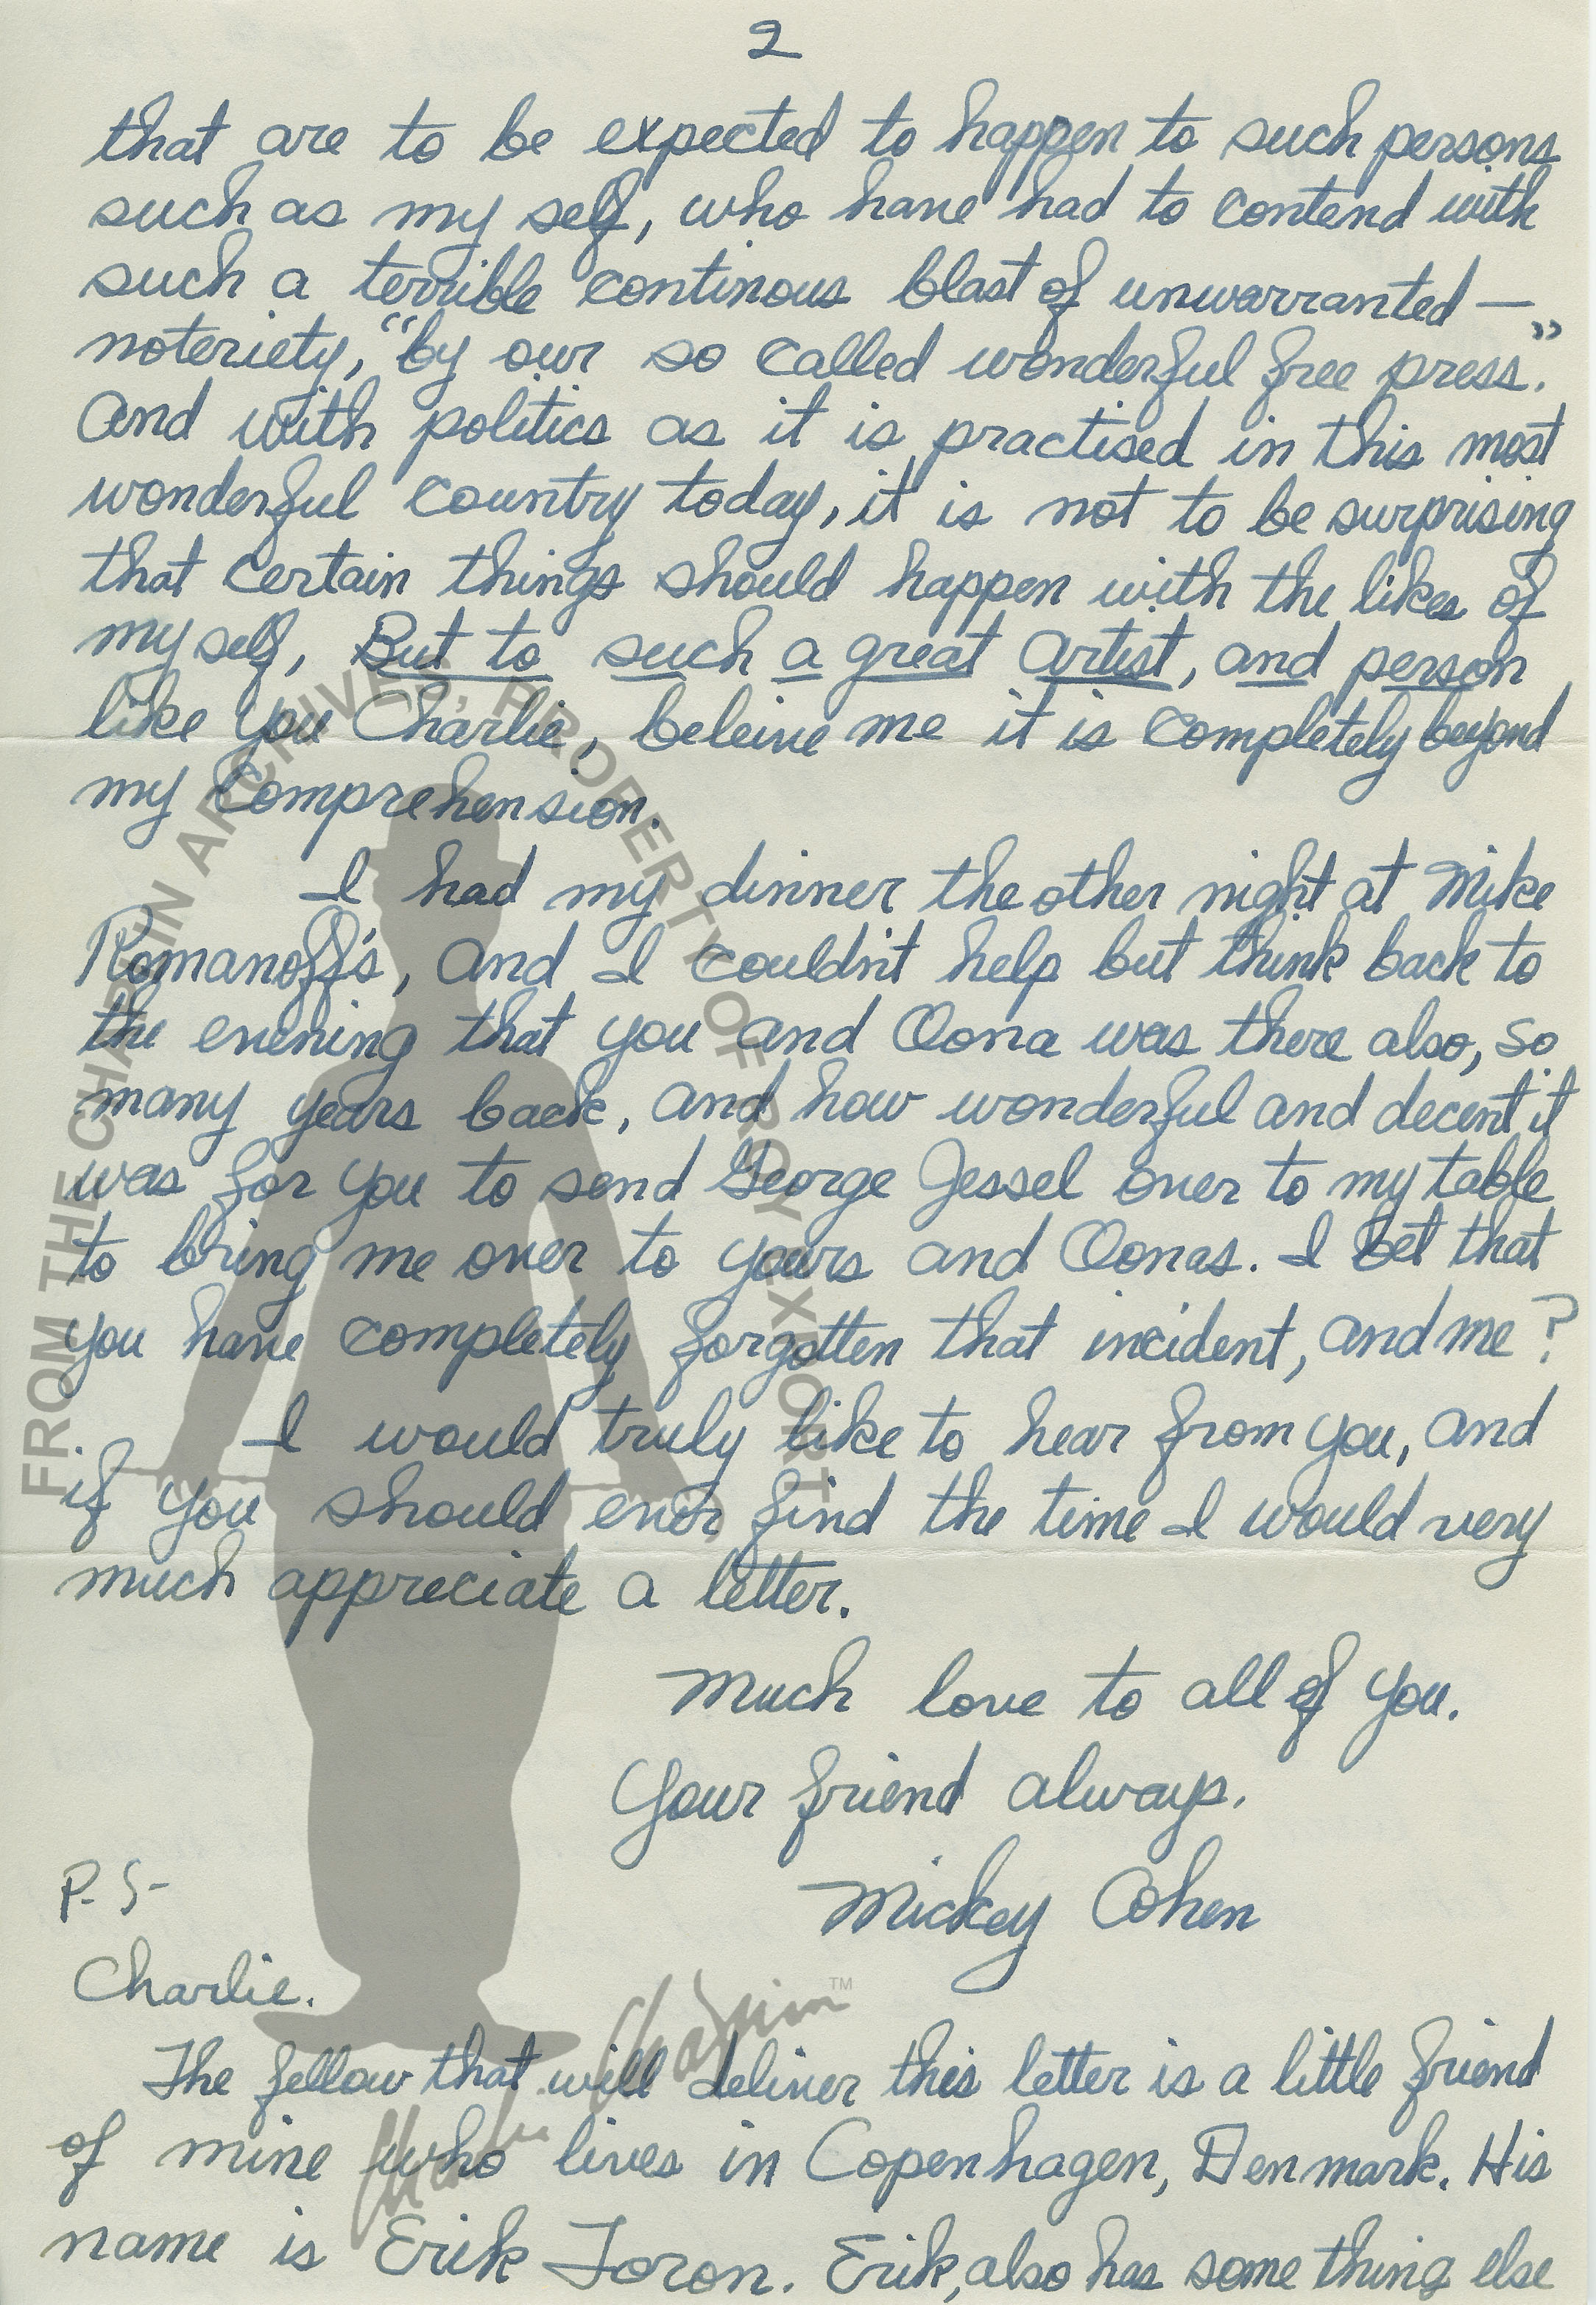 2
that are to be expected to happen to such persons
such as my self, who have had to contend with
such a terrible continous blast of unwarranted —
noteriety, "by our so called wonderful free press."
And with politics as it is practised in this most
wonderful country today, it is not to be surprising
that certain things should happen with the likes of
my self, But to such a great artist, and person
like you Charlie, beleive me it is completely beyond
my comprehension.
I had my dinner the other night at Mike
Romanoff's, and I couldn't help but think back to
the evening that you and Oona was there also, so
many years back, and how wonderful and decent it
was for you to send George Jessel over to my table
to bring me over to yours and Oonas. I bet that
you have completely forgotten that incident, and me?
I would truly like to hear from you, and
if you should ever find the time I would very
much appreciate a letter.
Much love to all of you.
Your friend always.
Mickey Cohen
P.S-
Charlie.
The fellow that will deliver this letter is a little friend
of mine who lives in Copenhagen, Denmark. His
name is Erik Toron. Erik, also has some thing else
FROM THE CHAPLIN ARCHIVES, PROPERTY OF ROY EXPORT
Charlie Chaplin™